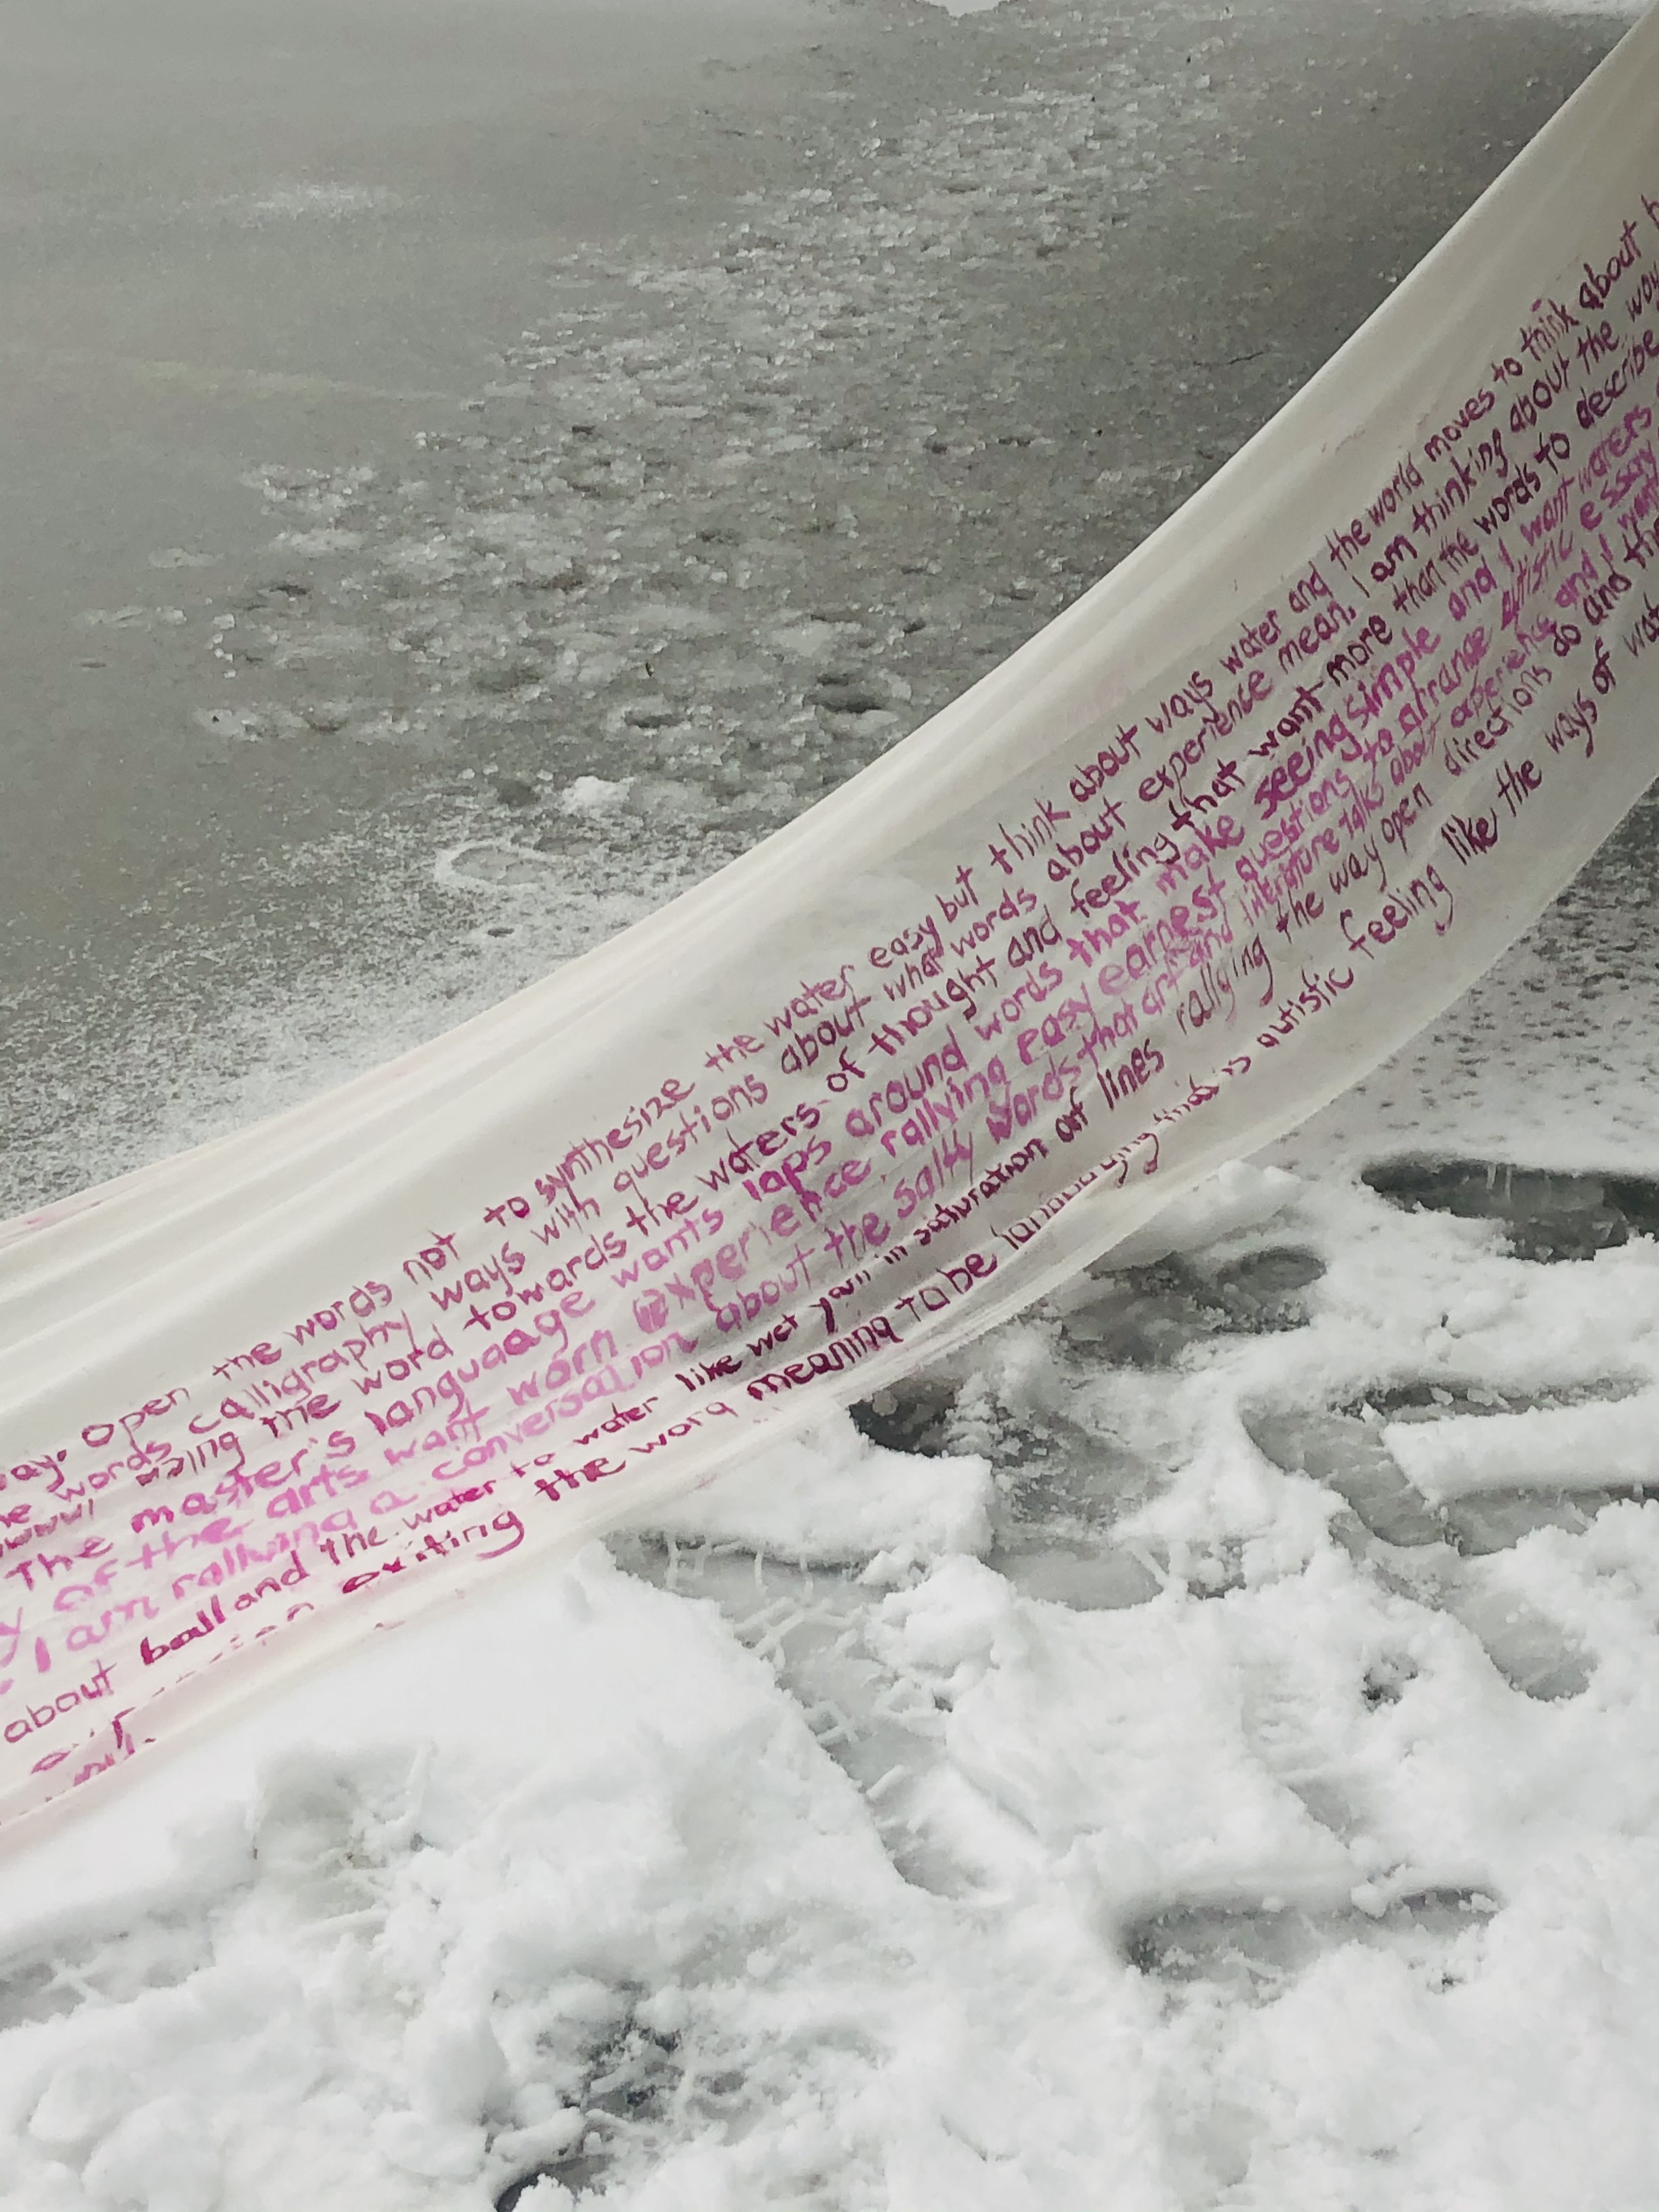 open the words not to synthesize the water easy but think about ways water and the world moves to think about
words calligraphy ways with questions about what words about experience mean, I am thinking about the way
the word towards the waters of thought and feeling that want more than the words to describe
The master's language wants laps around words that make seeing simple and I want waters
of the arts want worn experience rallying easy earnest questions to arrange autistic essay
I am rallying a conversation about the salty words that art and literature talks about experience and I want
about ball and the water to water like wet yarn in saturation art lines rallying the way open directions do and the
air exiting the word meaning to be languaging that is autistic feeling like the ways of